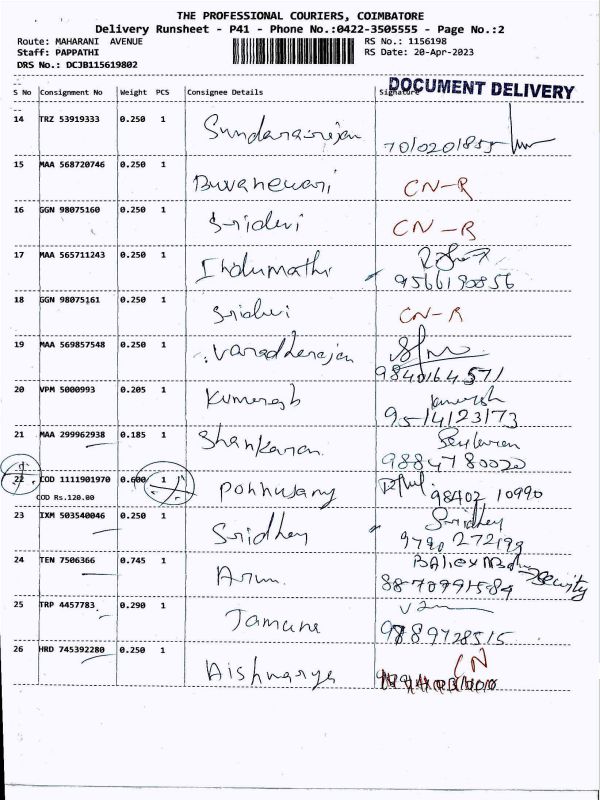 THE PROFESSIONAL COURIERS, COIMBATORE
Delivery Runsheet - P41 - Phone No.:0422-3505555 - Page No.:2
Route: MAHARANI AVENUE RS No.: 1156198
Staff: PAPPATHI RS Date: 20-Apr-2023
DRS No.: DCJB115619802
DOCUMENT DELIVERY
S No Consignment No Weight PCS Consignee Details Signature
14 TRZ 53919333 0.250 1 Sundararajan 7010201855
15 MAA 568720746 0.250 1 Buvaneswari CN-R
16 GGN 98075160 0.250 1 Sridevi CN-R
17 MAA 565711243 0.250 1 Indumathi
9566190856
18 GGN 98075161 0.250 1 Sridevi CN-R
19 MAA 569857548 0.250 1 Varadharajan
9840164571
20 VPM 5000993 0.205 1 Kumaresh Kumaresh
9514123173
21 MAA 299962938 0.185 1 Shankaran
9884780020
22 COD 1111901970 0.600 1 Ponnusamy 98402 10990
COD Rs.120.00
23 IXM 503540046 0.250 1 Sridhey Sridhey
9790 272199
24 TEN 7506366 0.745 1 Arun
8870991584 security
25 TRP 4457783 0.290 1 Jamuna
9789728515
26 HRD 745392280 0.250 1 Aishwarya CN